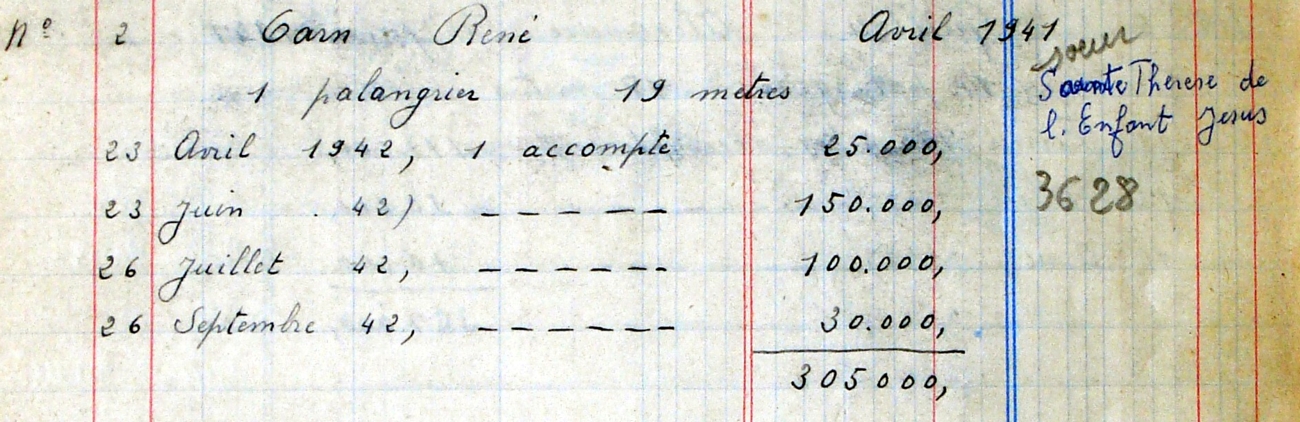 N° 2 Carn René Avril 1941
1 palangrier 19 metres
23 Avril 1942, 1 accompte 25.000,
23 Juin . 42) _ _ _ _ _ 150.000,
26 Juillet 42, _ _ _ _ _ _ 100.000,
26 Septembre 42, _ _ _ _ _ _ 30.000,
305000,
soeur
Sainte Therese de
l. Enfant Jesus
3628